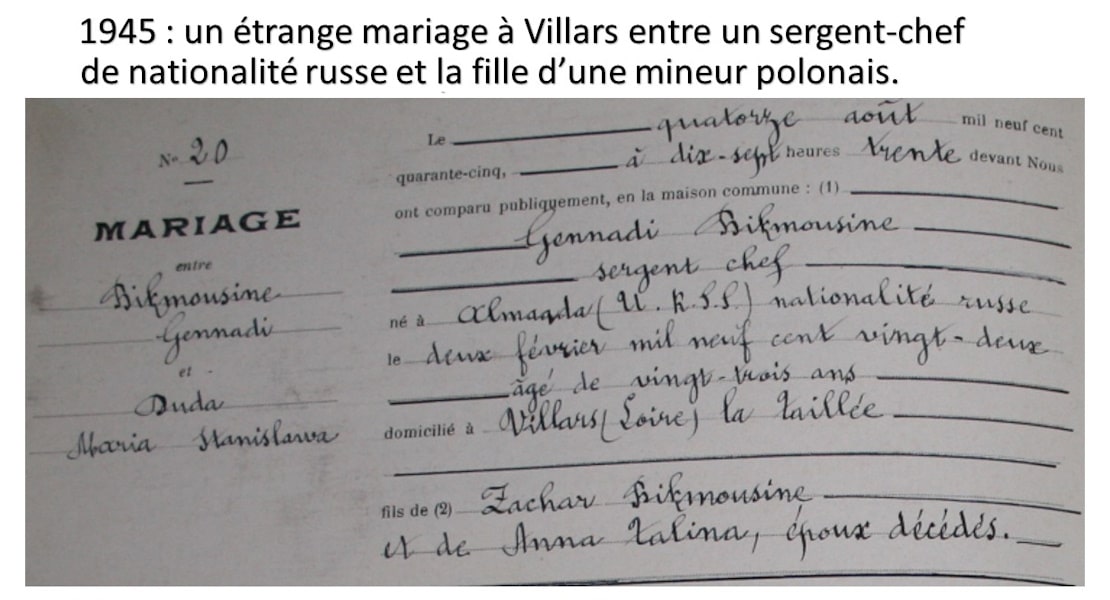 1945 : un étrange mariage à Villars entre un sergent-chef
de nationalité russe et la fille d’une mineur polonais.
N° 20
MARIAGE
entre
Bikmousine
Gennadi
et
Duda
Maria Stanislawa
Le quatorze août mil neuf cent
quarante-cinq, à dix-sept heures trente devant Nous
ont comparu publiquement, en la maison commune : (1)
Gennadi Bikmousine
sergent chef
né à Almagda (U.R.S.S) nationalité russe
le deux février mil neuf cent vingt-deux
âgé de vingt-trois ans
domicilié à Villars (Loire) la Taillée
fils de (2) Zachar Bikmousine
et de Anna Talina, époux décédés.